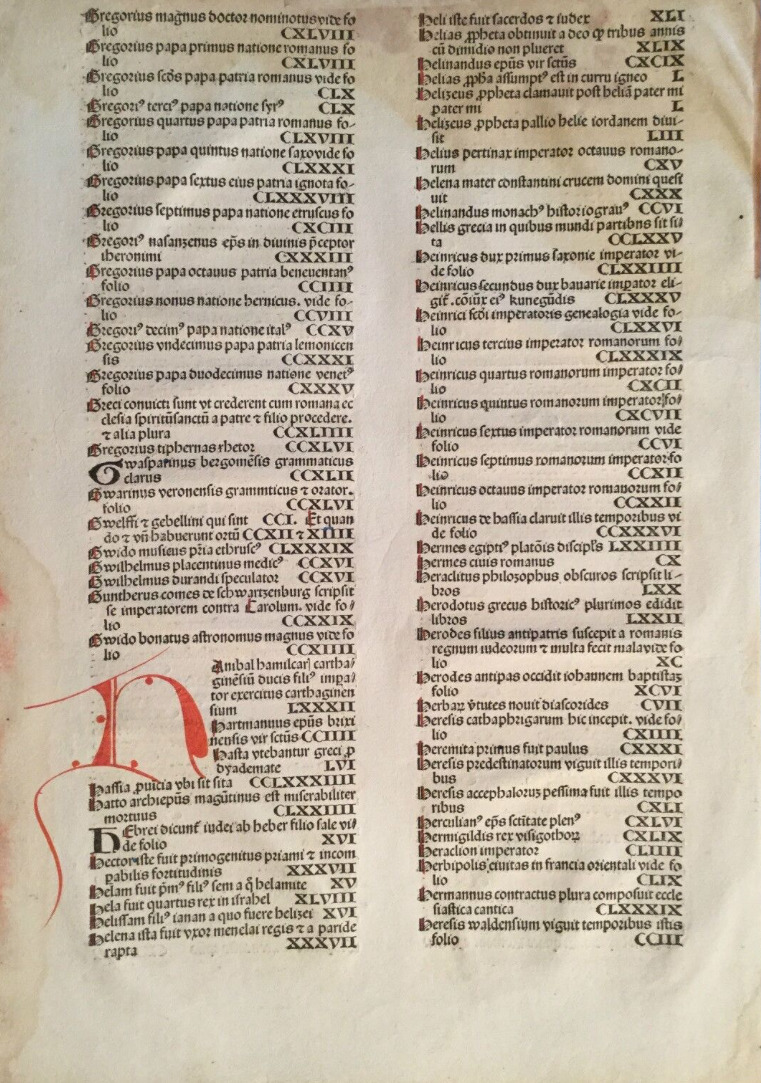 Gregorius magnus doctor nominotus vide fo
lio CXLVIII
Gregorius papa primus natione romanus fo
lio CXLVIII
Gregorius scd̄s papa patria romanus vide fo
lio CLX
Gregoriꝰ terciꝰ papa natione syrꝰ CLX
Gregorius quartus papa patria romanus fo-
lio CLXVIII
Gregorius papa quintus natione saxo vide fo
lio CLXXXI
Gregorius papa sextus eius patria ignota fo-
lio CLXXXVIII
Gregorius septimus papa natione etruscus fo
lio CXCIII
Gregoriꝰ nasanzenus ep̄s in diuinis p̄ceptor
iheronimi CXXXIII
Gregorius papa octauus patria beneuentanꝰ
folio CCIIII
Gregorius nonus natione hernicus. vide fo-
lio CCVIII
Gregoriꝰ decimꝰ papa natione italꝰ CCXV
Gregorius vndecimus papa patria lemonicen
sis CCXXXI
Gregorius papa duodecimus natione venetꝰ
folio CXXXV
Greci conuicti sunt vt crederent cum romana ec
clesia spiritūsanctū a patre ⁊ filio procedere.
⁊ alia plura CCXLIIII
Gregorius tiphernas rhetor CCXLVI
Gwasparinus bergomēsis grammaticus
clarus CCXLII
Gwarinus veronensis grammticus ⁊ orator.
folio CCXLVI
Gwelffi ⁊ gebellini qui sint CCI. Et quan
do ⁊ vn̄ habuerunt ortū CCXII ⁊ XIIII
Gwido museus p̄ria ethruscꝰ CLXXXIX
Gwilhelmus placentinus medicꝰ CCXVI
Gwilhelmus durandi speculator CCXVI
Guntherus comes de schwartzenburg scripsit
se imperatorem contra Carolum. vide fo-
lio CCXXIX
Gwido bonatus astronomus magnus vide fo
lio CCXIIII
Anibal hamilcar cartha-
ginēsiū ducis filiꝰ impa-
tor exercitus carthaginen
sium LXXXII
Hartmannus epūs brixi
nensis vir sctūs CCIIII
Hasta vtebantur greci ꝓ
dyademate LVI
Hassia ꝓuicia vbi sit sita CCLXXXIIII
Hatto archiepūs magūtinus est miserabiliter
mortuus CLXXIIII
HEbrei dicunt iudei ab heber filio sale vi-
de folio XVI
Hector iste fuit primogenitus priami ⁊ incom
pabilis fortitudinis XXXVII
Helam fuit pm̄ꝰ filiꝰ sem a q̄ helamite XV
Hela fuit quartus rex in israhel XLVIII
Helissam filiꝰ ianan a quo fuere helizei XVI
Helena ista fuit vxor menelai regis ⁊ a paride
rapta XXXVII
Heli iste fuit sacerdos ⁊ iudex XLI
Helias ꝓpheta obtinuit a deo ꝙ tribus annis
cū dimidio non plueret XLIX
Helinandus epūs vir sctūs CXCIX
Helias ꝓph̄a assumptꝰ est in curru igneo L
Helizeus ꝓpheta clamauit post heliā pater mi
pater mi L
Helizeus ꝓpheta pallio helie iordanem diui-
sit LIII
Helius pertinax imperator octauus romano-
rum CXV
Helena mater constantini crucem domini quesi
uit CXXX
Helinandus monachꝰ historiograuꝰ CCVI
Hellis grecia in quibus mundi partibns sit si
ta CCLXXV
Heinricus dux primus saxonie imperator vi-
de folio CLXXIIII
Heinricus secundus dux bauarie impator eli-
git. cōiūx eiꝰ kunegūdis CLXXXV
Heinrici scd̄i imperatoris genealogia vide fo-
lio CLXXVI
Heinricus tercius imperator romanorum fo-
lio CLXXXIX
Heinricus quartus romanorum imperator fo-
lio CXCII
Heinricus quintus romanorum imperator fo-
lio CXCVII
Heinricus sextus imperator romanorum vide
folio CCVI
Heinricus septimus romanorum imperator fo
lio CCXII
Heinricus octauus imperator romanorum fo-
lio CCXXII
Heinricus de hassia claruit illis temporibus vi
de folio CCXXXVI
Hermes egiptiꝰ platōis discipls̄ LXXIIII
Hermes ciuis romanus CX
Heraclitus philosophus obscuros scripsit li-
bros LXX
Herodotus grecus historicꝰ plurimos edidit
libros LXXII
Herodes filius antipatris suscepit a romanis
regnum iudeorum ⁊ multa fecit mala vide fo
lio XC
Herodes antipas occidit iohannem baptistaꝫ
folio XCVI
Herbaꝝ v̄tutes nouit diascorides CVII
Heresis cathaphrigarum hic incepit. vide fo-
lio CXIIII
Heremita primus fuit paulus CXXXI
Heresis predestinatorum viguit illis tempori-
bus CXXXVI
Heresis accephaloruꝫ pessima fuit illis tempo
ribus CXLI
Herculianꝰ ep̄s sctītate plenꝰ CXLVI
Hermigildis rex visigothoꝝ CXLIX
Heraclion imperator CLIIII
Herbipolis ciuitas in francia orientali vide fo
lio CLIX
Hermannus contractus plura composuit eccle
siastica cantica CLXXXIX
Heresis waldensium viguit temporibus istis
folio CCIII